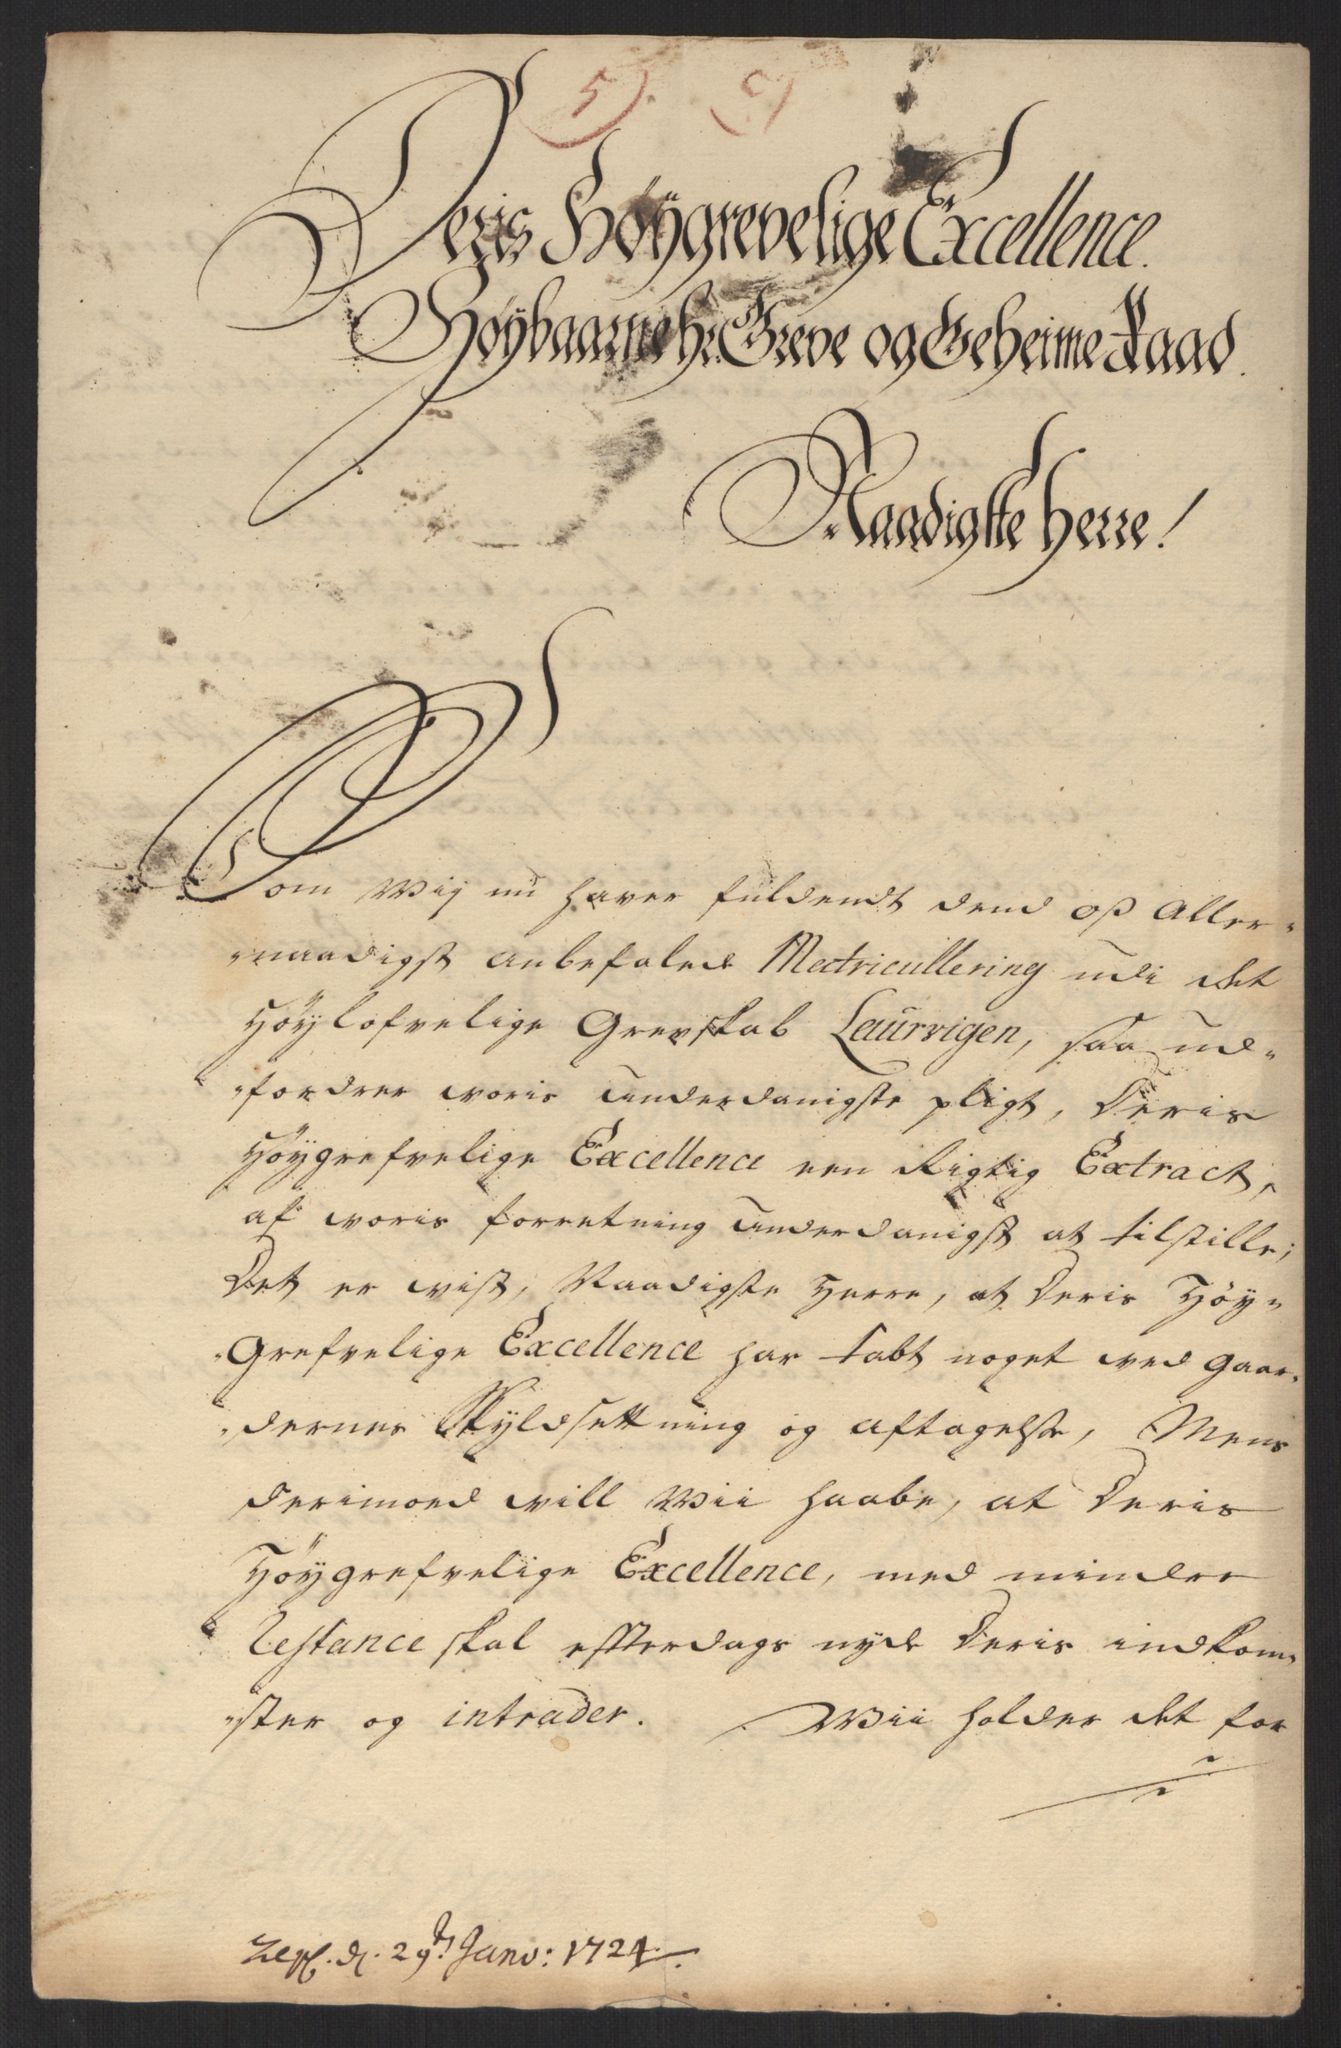 5). C)
Deris Høygrevelige Excellence.
Høybaarne hr. Greve og Geheime Raad.
Naadigste herre!
Som Wij nu haver fuldendt dend oß Aller-
naadigst anbefalede Matricullering udi det
Høylofvelige Grevskab Laurvigen, saa ud-
fordrer voris underdanigste pligt, Deris
Høygrefvelige Excellence een Rigtig Extract,
af voris forretning underdanigst at tilstille;
Det er vist, Naadigste Herre, at Deris Høy-
Grefvelige Excellence har tabt noget ved gaar-
dernes Skyldsettning og aftagelse, Mens
derimoed vill Wii haabe, at Deris
Høygrefvelige Excellence, med mindre
Restance skal effterdags nyde Deris indkom-
ster og intrader. Wii holder det for
d. 29de Janv: 1724.